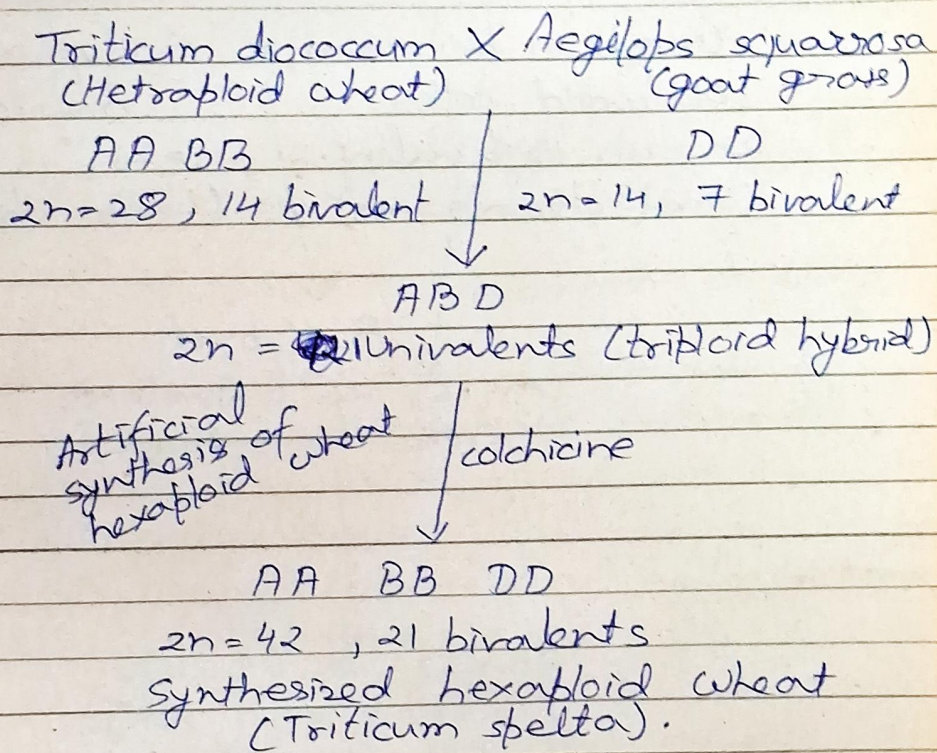 Triticum diococcum X Aegilops squarrosa
(Hetraploid wheat) (goat grass)
AA BB DD
2n=28, 14 bivalent 2n=14, 7 bivalent
ABD
2n = 21 Univalents (triploid hybrid)
Artificial synthesis of hexaploid wheat
colchicine
AA BB DD
2n=42, 21 bivalents
Synthesized hexaploid wheat
(Triticum spelta).